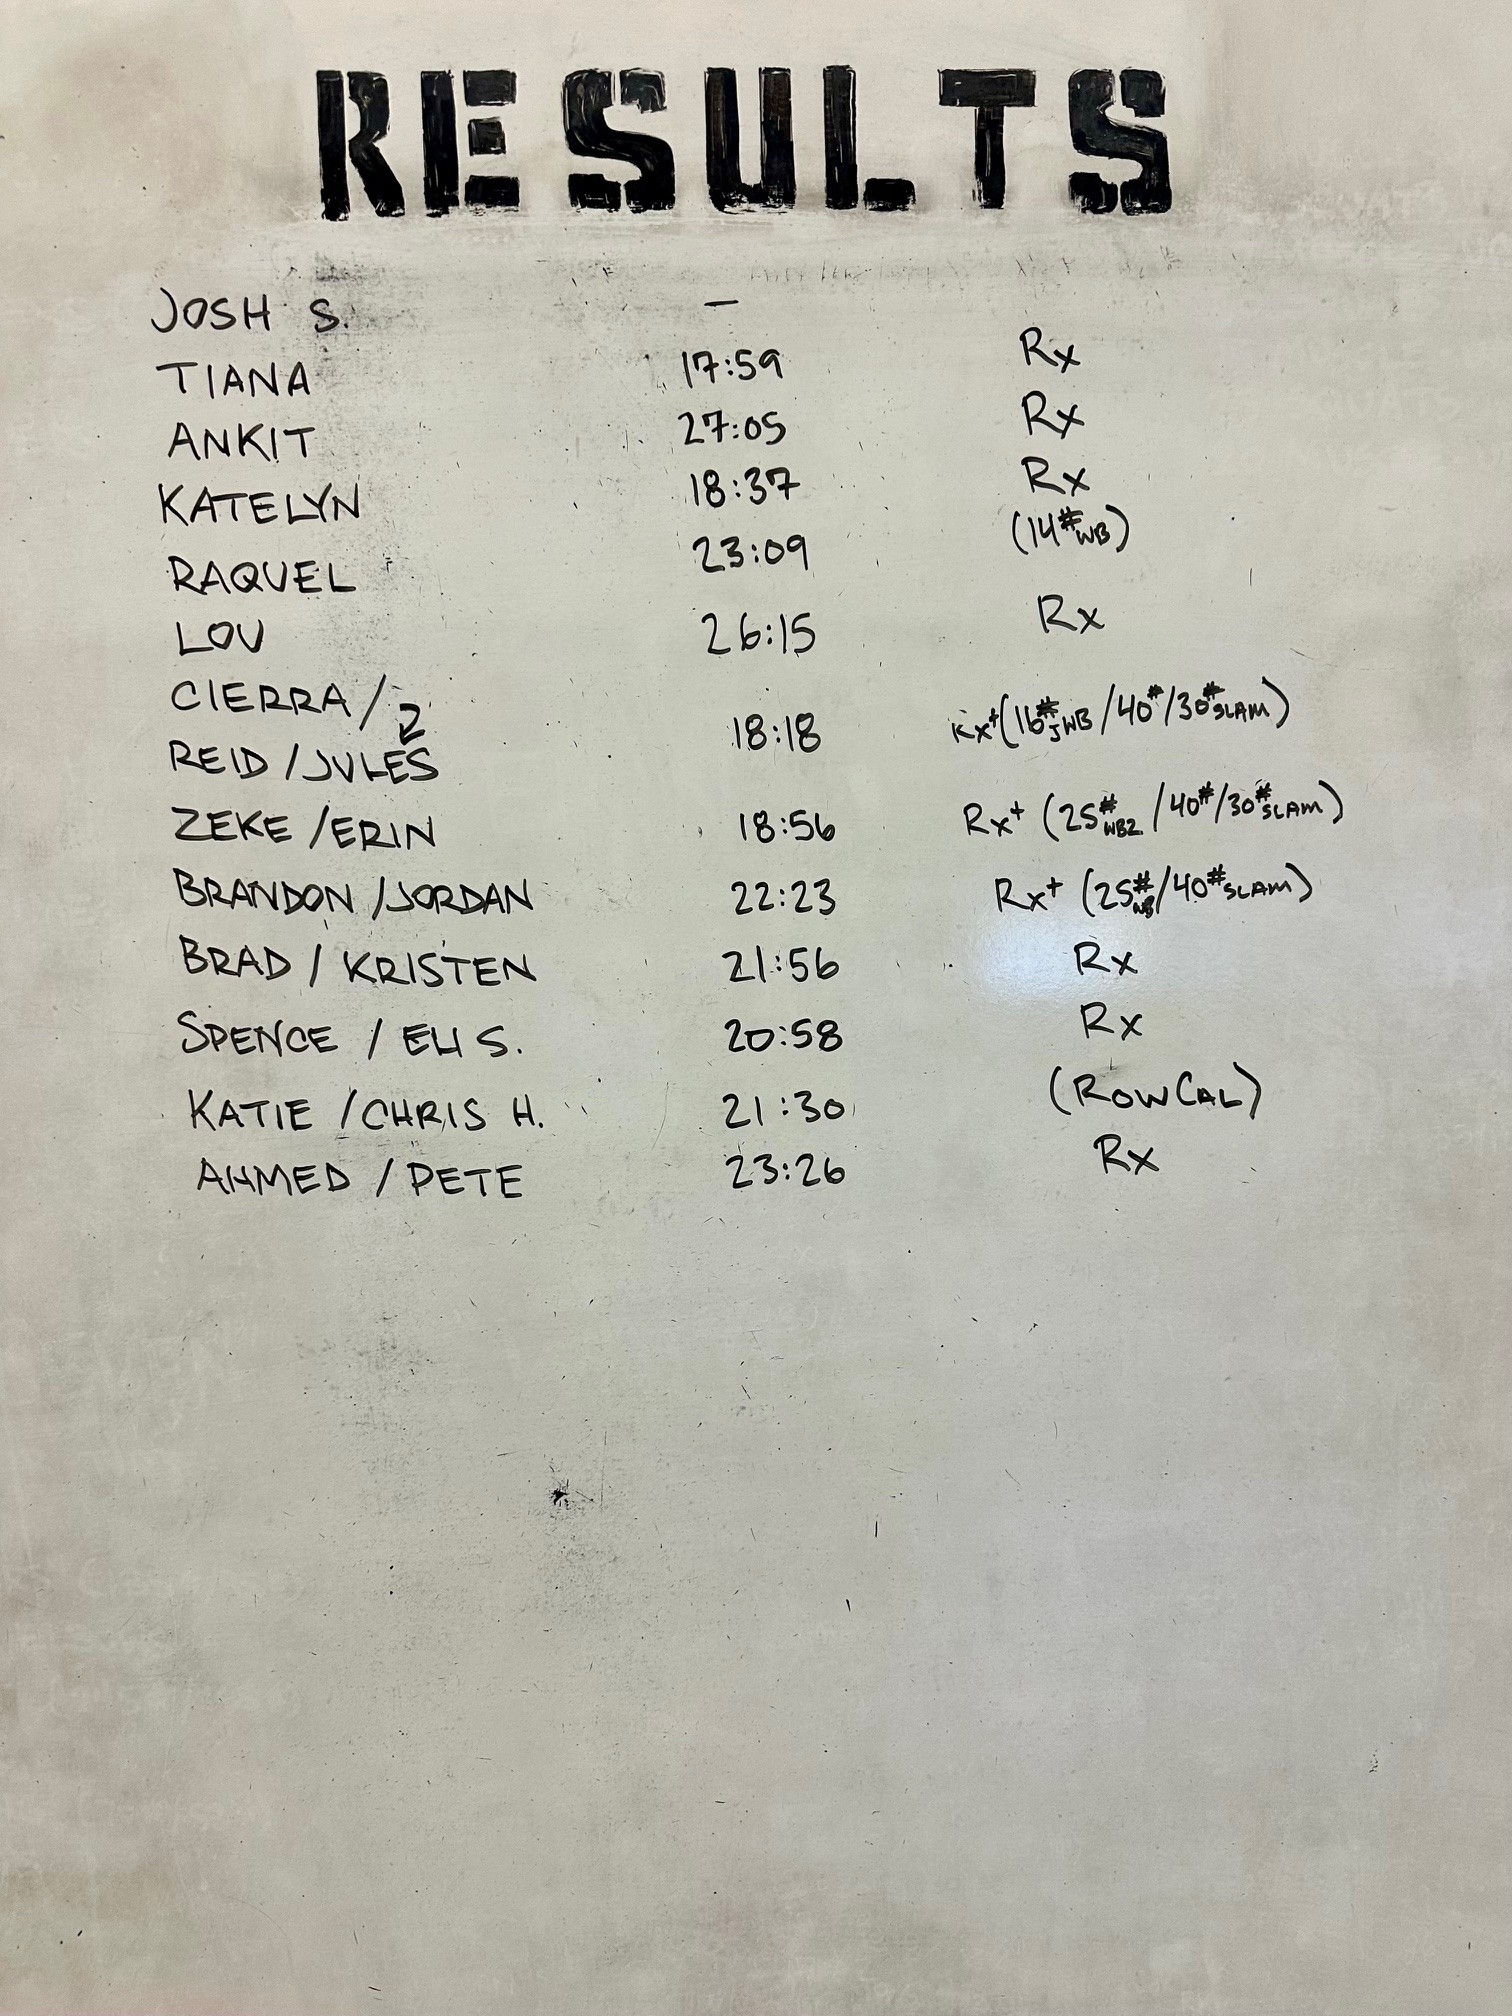 RESULTS
JOSH S. —
TIANA 17:59 Rx
ANKIT 27:05 Rx
KATELYN 18:37 Rx
RAQUEL 23:09 (14# WB)
LOU 26:15 Rx
CIERRA /
REID / JULES 18:18 Rx+ (16# WB / 40# / 30# SLAM)
ZEKE / ERIN 18:56 Rx+ (25# / 40# / 30# SLAM)
BRANDON / JORDAN 22:23 Rx+ (25# WB / 40# SLAM)
BRAD / KRISTEN 21:56 Rx
SPENCE / ELI S. 20:58 Rx
KATIE / CHRIS H. 21:30 (ROW CAL)
AHMED / PETE 23:26 Rx